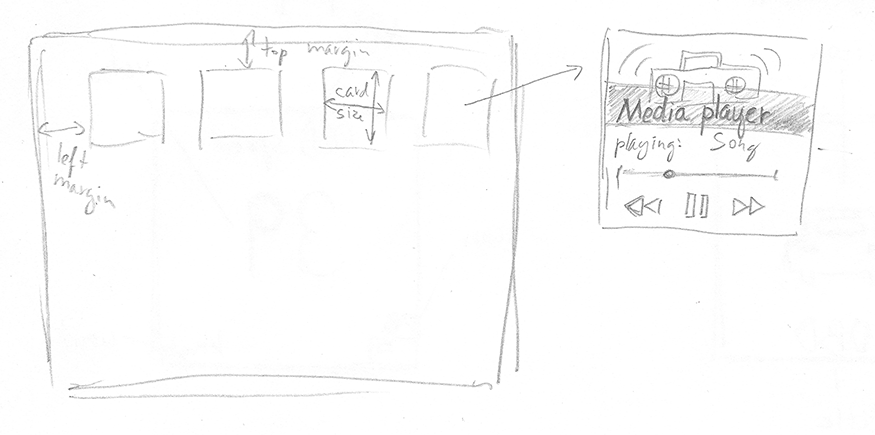 top margin
card
size
left
margin
Media player
playing: Song